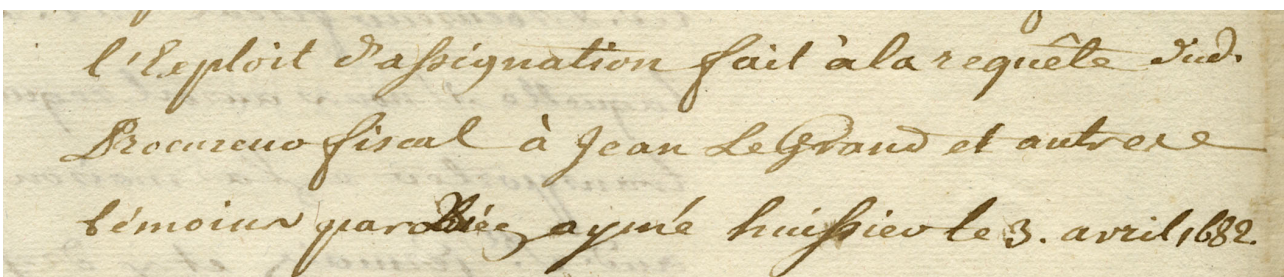 l'Exploit d'assignation fait à la requête dud.
Procureur fiscal à Jean Le Grand et autres
témoins par aymé huissier le 3. avril 1682.